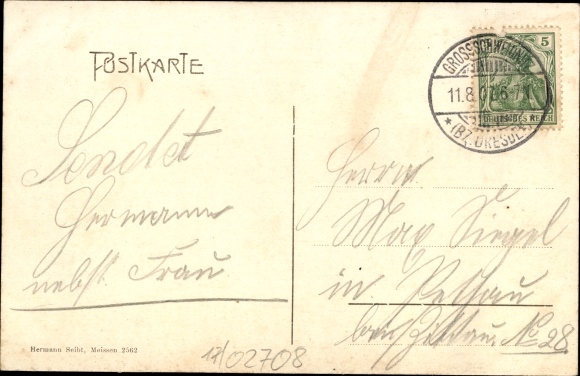 POSTKARTE
GROSSSCHWEIDNITZ
11.8.07. 6-7
* (BZ. DRESDEN)
5
DEUTSCHES REICH
Sendet
Hermann
nebst Frau.
Herrn
Max Siegel
in Pethau
bei Zittau. No 28
Hermann Seibt, Meissen 2562
17/02708